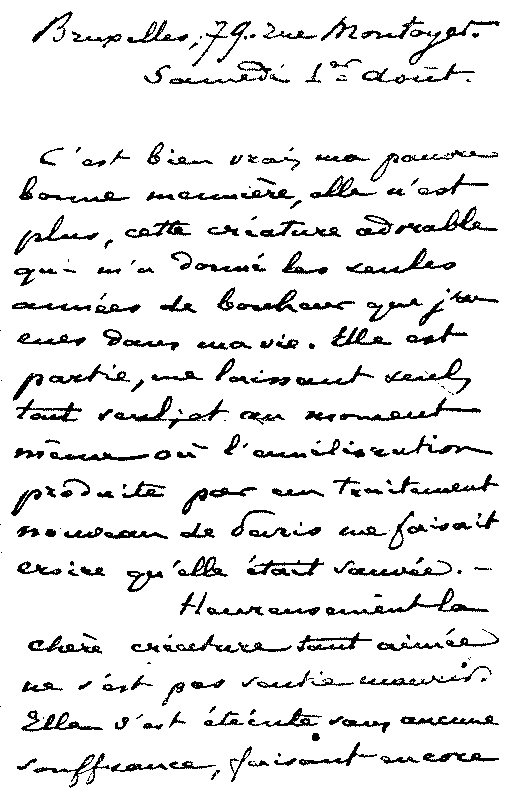 Bruxelles, 79. rue Montoyer.
Samedi 1er août.
C'est bien vrai, ma pauvre
bonne meunière, elle n'est
plus, cette créature adorable
qui m'a donné les seules
années de bonheur que j'ai
eues dans ma vie. Elle est
partie, me laissant seul,
tout seul, et au moment
même où l'amélioration
produite par un traitement
nouveau de Paris me faisait
croire qu'elle était sauvée. —
Heureusement la
chère créature tant aimée
ne s'est pas sentie mourir.
Elle s'est éteinte sans aucune
souffrance, faisant encore